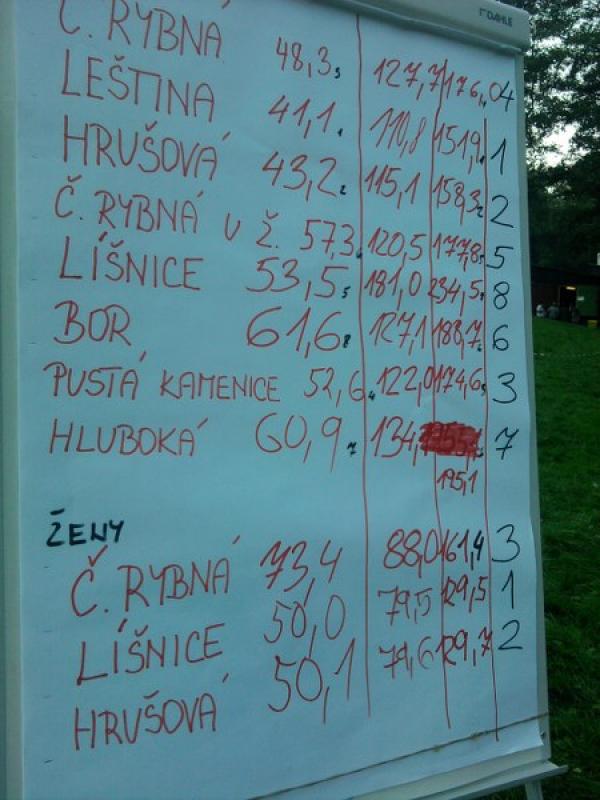 DAHLE
Č. RYBNÁ 48,3 127,7 176,0 4
LEŠTINA 41,1 110,8 151,9 1
HRUŠOVÁ 43,2 115,1 158,3 2
Č. RYBNÁ U Ž. 57,3 120,5 177,8 5
LÍŠNICE 53,5 181,0 234,5 8
BOR 61,6 127,1 188,7 6
PUSTÁ KAMENICE 52,6 122,0 174,6 3
HLUBOKÁ 60,9 7
195,1
ŽENY
Č. RYBNÁ 73,4 88,0 161,4 3
LÍŠNICE 50,0 79,5 129,5 1
HRUŠOVÁ 50,1 79,6 129,7 2